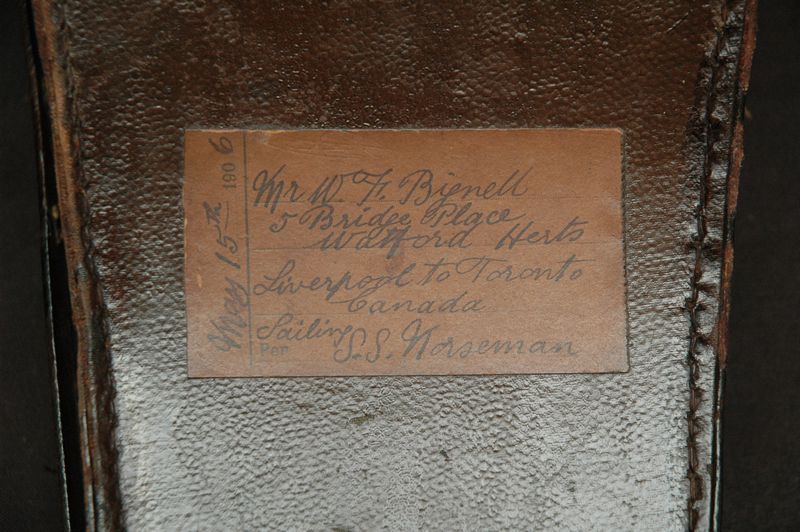 May 15th 1906
Mr W. F. Bignell
5 Bridge Place
Watford Herts
Liverpool to Toronto
Canada
Sailing
Per S.S. Norseman